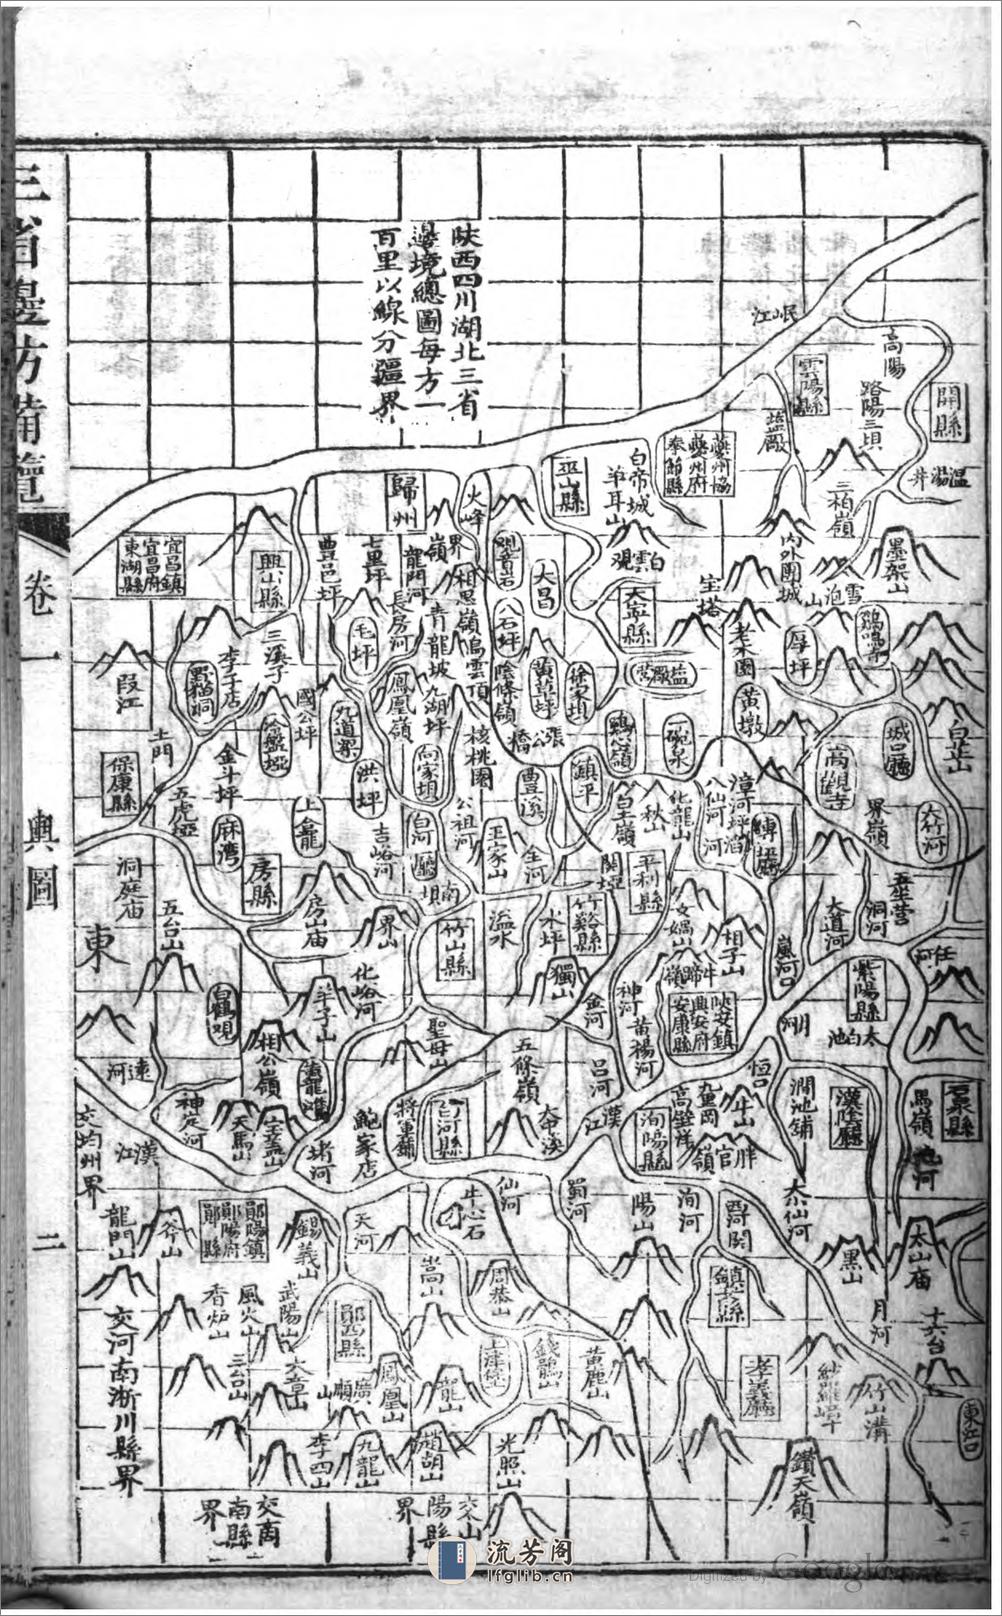 三省邊防備覽
卷一
輿圖
二
陝西四川湖北三省
邊境總圖每方一
百里以線分疆界
岷江
高陽
開縣
雲陽縣
路陽三埧
鹽厰
溫湯井
夔州協
夔州府
奉節縣
白帝城
羊耳山
三栢嶺
巫山縣
火峰
歸州
白雲觀
內外圍城
墨架山
雪泡山
雞鳴寺
宜昌鎮
宜昌府
東湖縣
興山縣
豐邑坪
七里坪
龍門河
界嶺
相思嶺
觀音石
大昌
大寧縣
寶塔
老木園
厚坪
三溪子
毛坪
長房河
青龍坡
烏雲頂
八石坪
陰條嶺
黃草坪
徐家埧
鹽厰營
黃墩
城口廳
白芷山
段江
李子店
國公坪
九道梁
鳳凰嶺
九湖坪
核桃園
張公橋
雞心嶺
一碗泉
高觀寺
土門
保康縣
金斗坪
洪坪
向家埧
豐溪
鎮平
界嶺
大竹河
五虎埡
麻灣
上龕
吉峪河
白河
公祖河
王家山
全河
白土嶺
秋山
化龍山
八仙河
漳河坪
磚坪廳
洞庭庙
房縣
房山庙
界山
竹山縣
溢水
水坪
竹谿縣
關埡
平利縣
女媧山
牛蹄嶺
相子山
嵐河口
大道河
洞河
五坐营
任河
東
五台山
羊子山
化峪河
獨山
神河
陝安鎮
興安府
安康縣
紫陽縣
太白池
月河
白鶴观
相公嶺
聖母山
五條嶺
金河
呂河
黃楊河
恒口
遠河
神定河
天馬山
宝蓋山
堵河
鮑家店
將軍鋪
白河縣
大中溪
漢江
洵陽縣
九里岡
牛山
澗池鋪
漢陰廳
馬嶺
池河
石泉縣
交均州界
漢江
龍門山
斧山
鄖陽鎮
鄖陽府
鄖縣
錫義山
天河
牛心石
仙河
蜀河
陽山
洵河
大仙河
黑山
太山庙
香炉山
風火山
武陽山
鄖西縣
嵩山
鎮安縣
月河
十六台
三台山
鳳凰山
龍山
上津堡
錢鵝山
黃鹿山
孝義廳
竹山溝
東江口
李四山
九龍山
趙胡山
光照山
鑽天嶺
交河南淅川縣界
交商南縣界
交山陽縣界
流芳阁
lfglib.cn
Digitized by Google